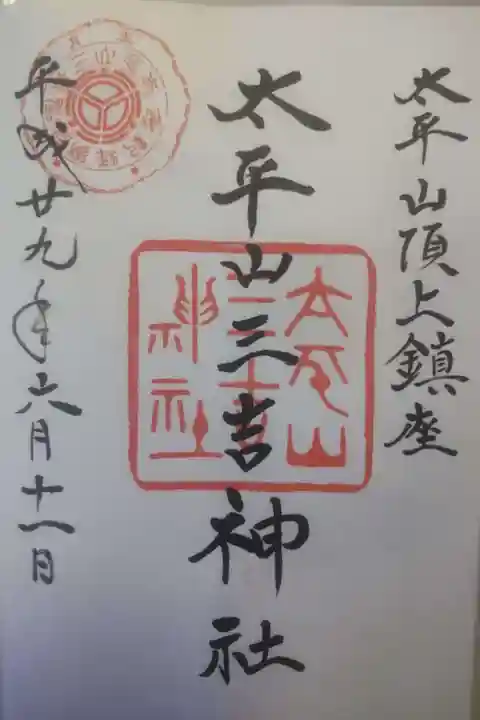 太平山頂上鎮座
太平山三吉神社
平成廿九年六月十一日
太平山
三吉
神社